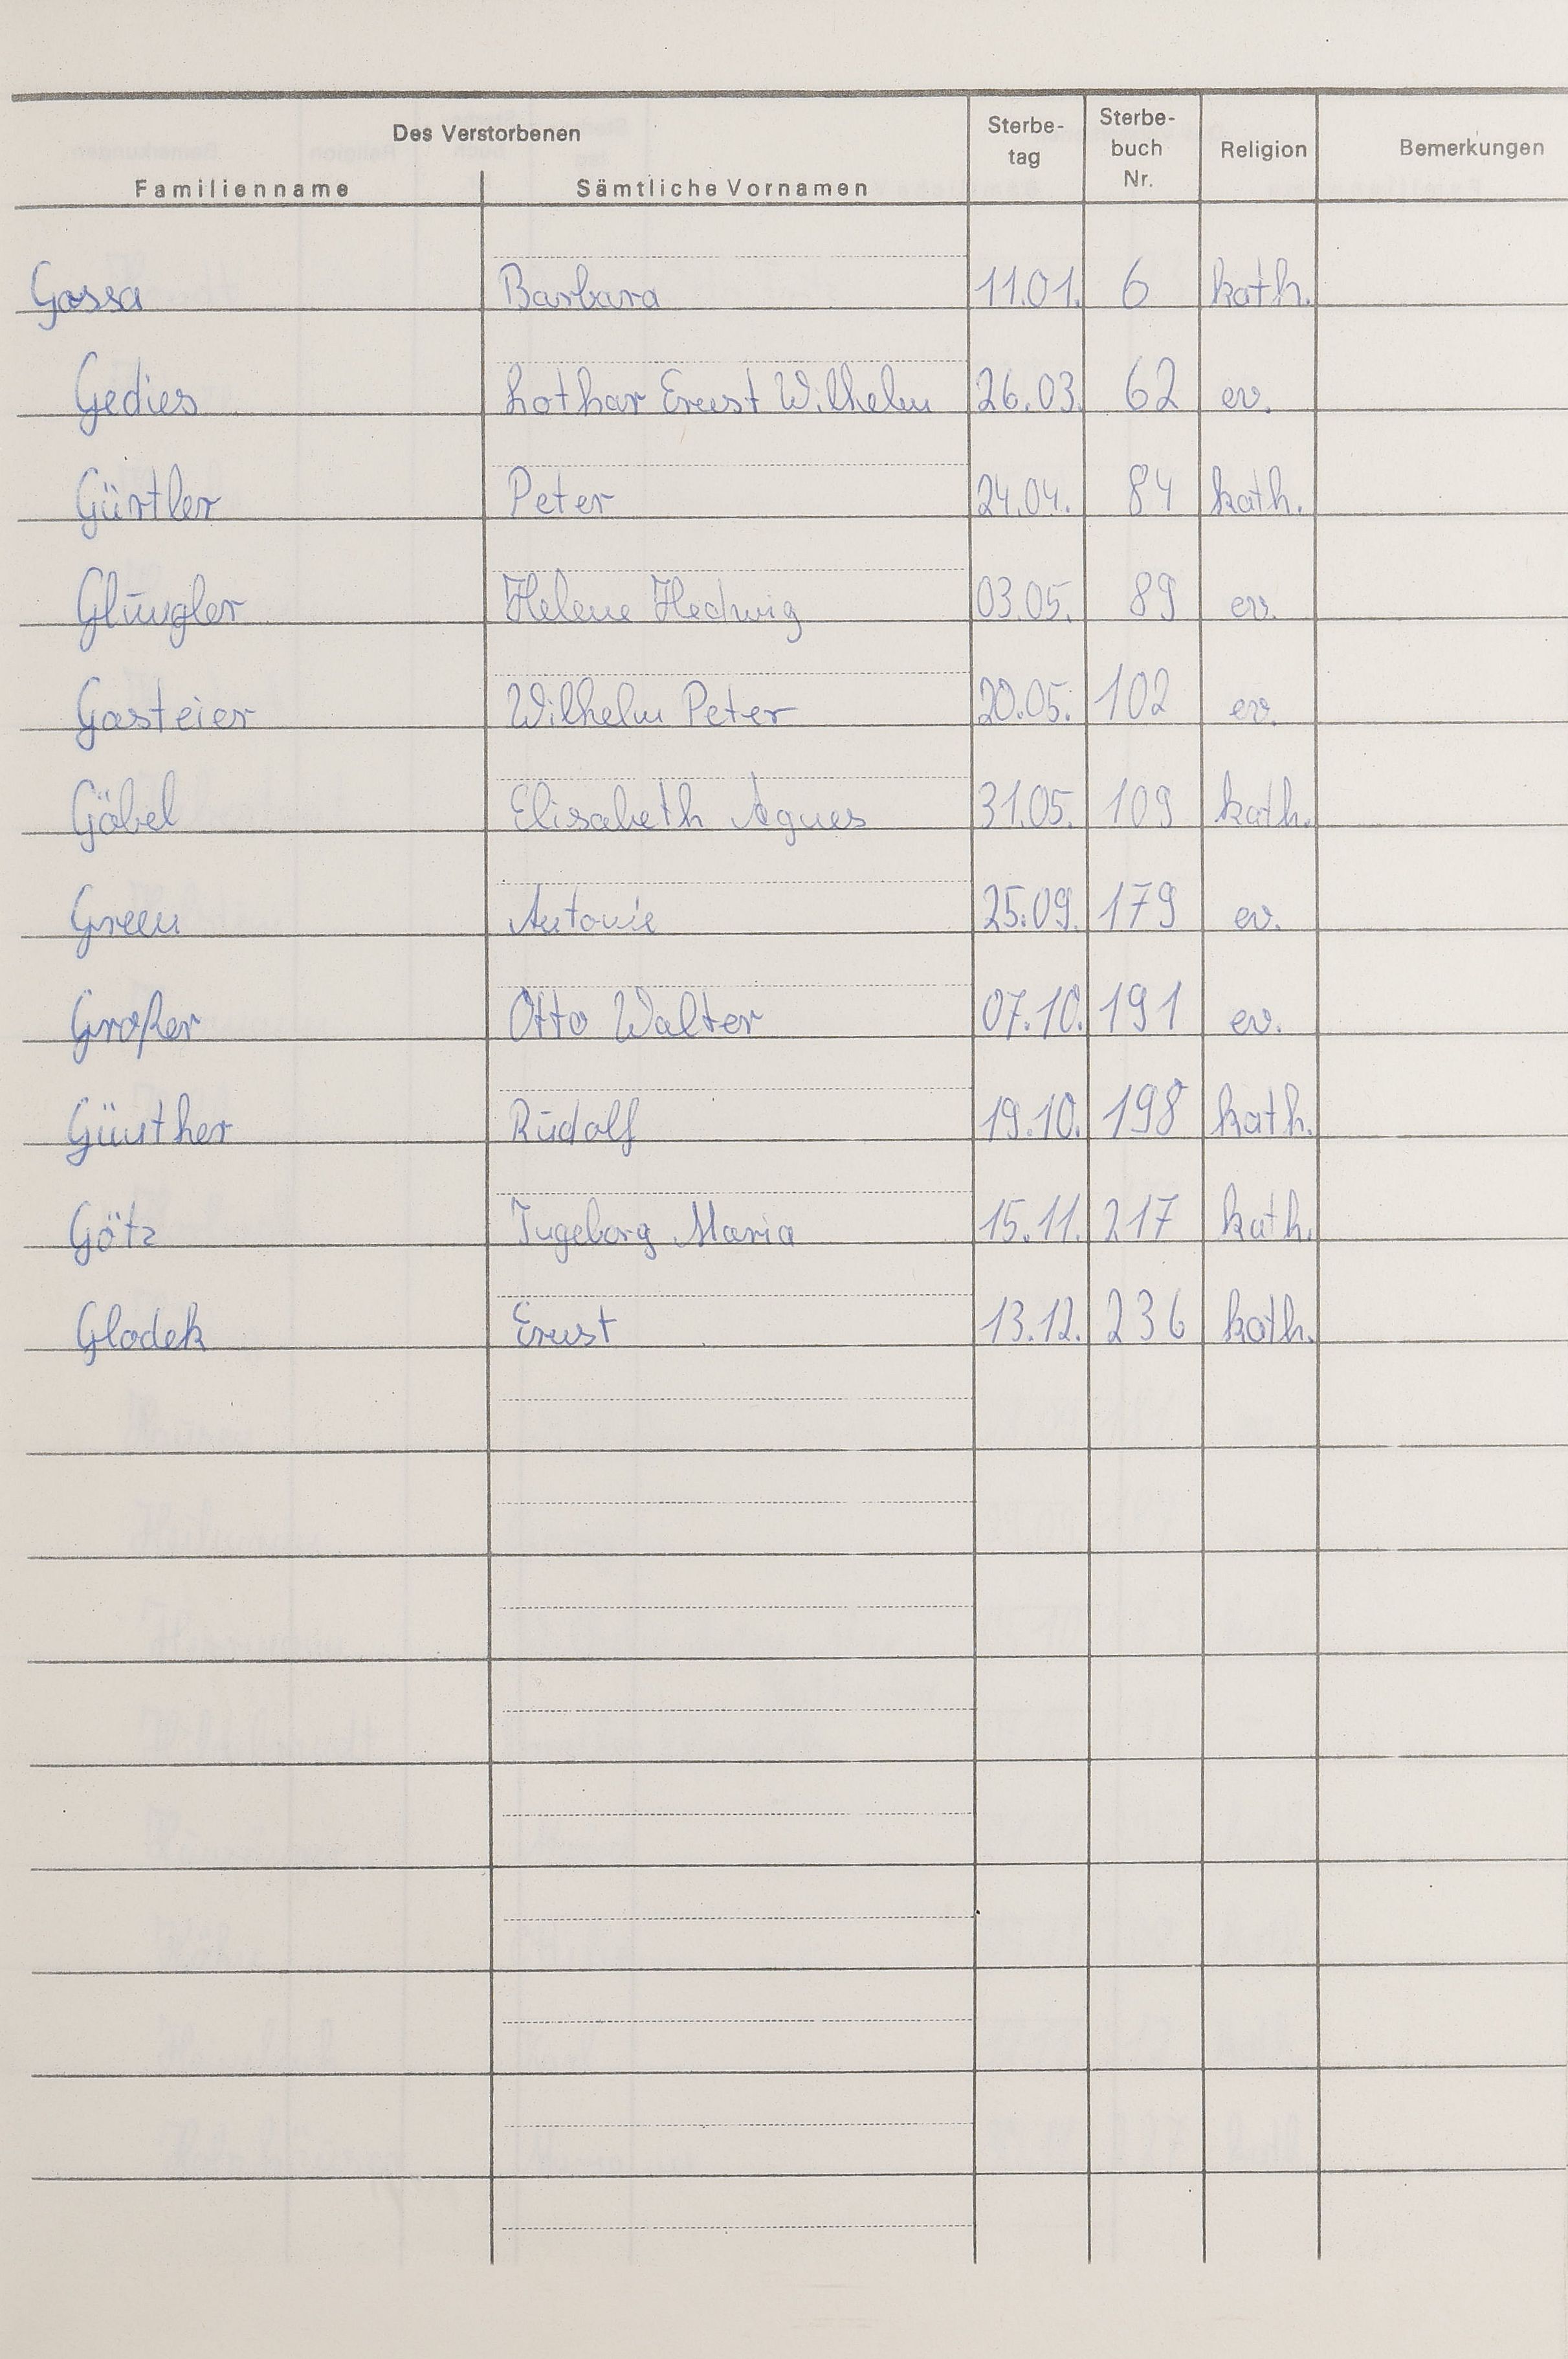 Des Verstorbenen
Familienname Sämtliche Vornamen Sterbe-tag Sterbe-buch Nr. Religion Bemerkungen
Gassa Barbara 11.01. 6 kath.
Gedies Lothar Ernst Wilhelm 26.03. 62 ev.
Gürtler Peter 24.04. 84 kath.
Glungler Helene Hedwig 03.05. 89 ev.
Gasteier Wilhelm Peter 20.05. 102 ev.
Göbel Elisabeth Agnes 31.05. 109 kath.
Green Antonie 25.09. 179 ev.
Großer Otto Walter 07.10. 191 ev.
Günther Rudolf 19.10. 198 kath.
Götz Ingeborg Maria 15.11. 217 kath.
Glodek Ernst 13.12. 236 kath.